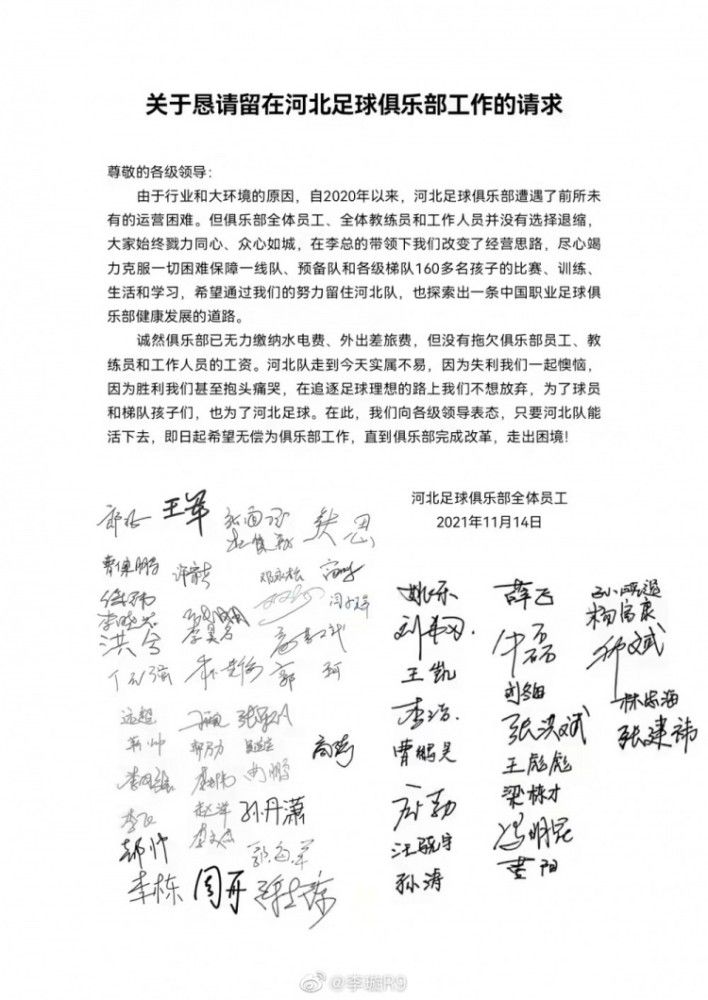 关于恳请留在河北足球俱乐部工作的请求
尊敬的各级领导：
由于行业和大环境的原因，自2020年以来，河北足球俱乐部遭遇了前所未
有的运营困难。但俱乐部全体员工、全体教练员和工作人员并没有选择退缩，
大家始终戮力同心、众心如城，在李总的带领下我们改变了经营思路，尽心竭
力克服一切困难保障一线队、预备队和各级梯队160多名孩子的比赛、训练、
生活和学习，希望通过我们的努力留住河北队，也探索出一条中国职业足球俱
乐部健康发展的道路。
诚然俱乐部已无力缴纳水电费、外出差旅费，但没有拖欠俱乐部员工、教
练员和工作人员的工资。河北队走到今天实属不易，因为失利我们一起懊恼，
因为胜利我们甚至抱头痛哭，在追逐足球理想的路上我们不想放弃，为了球员
和梯队孩子们，也为了河北足球。在此，我们向各级领导表态，只要河北队能
活下去，即日起希望无偿为俱乐部工作，直到俱乐部完成改革，走出困境！
河北足球俱乐部全体员工
2021年11月14日
王军
洪兮
郭珂
远超
孙丹潇
李栋
周开
姚乐
王凯
李浩
曹鹏昊
孙涛
薛飞
张洪斌
王彪彪
梁栋才
冯明昆
黄阳
杨富康
林忠海
张建祎
@李璇R9